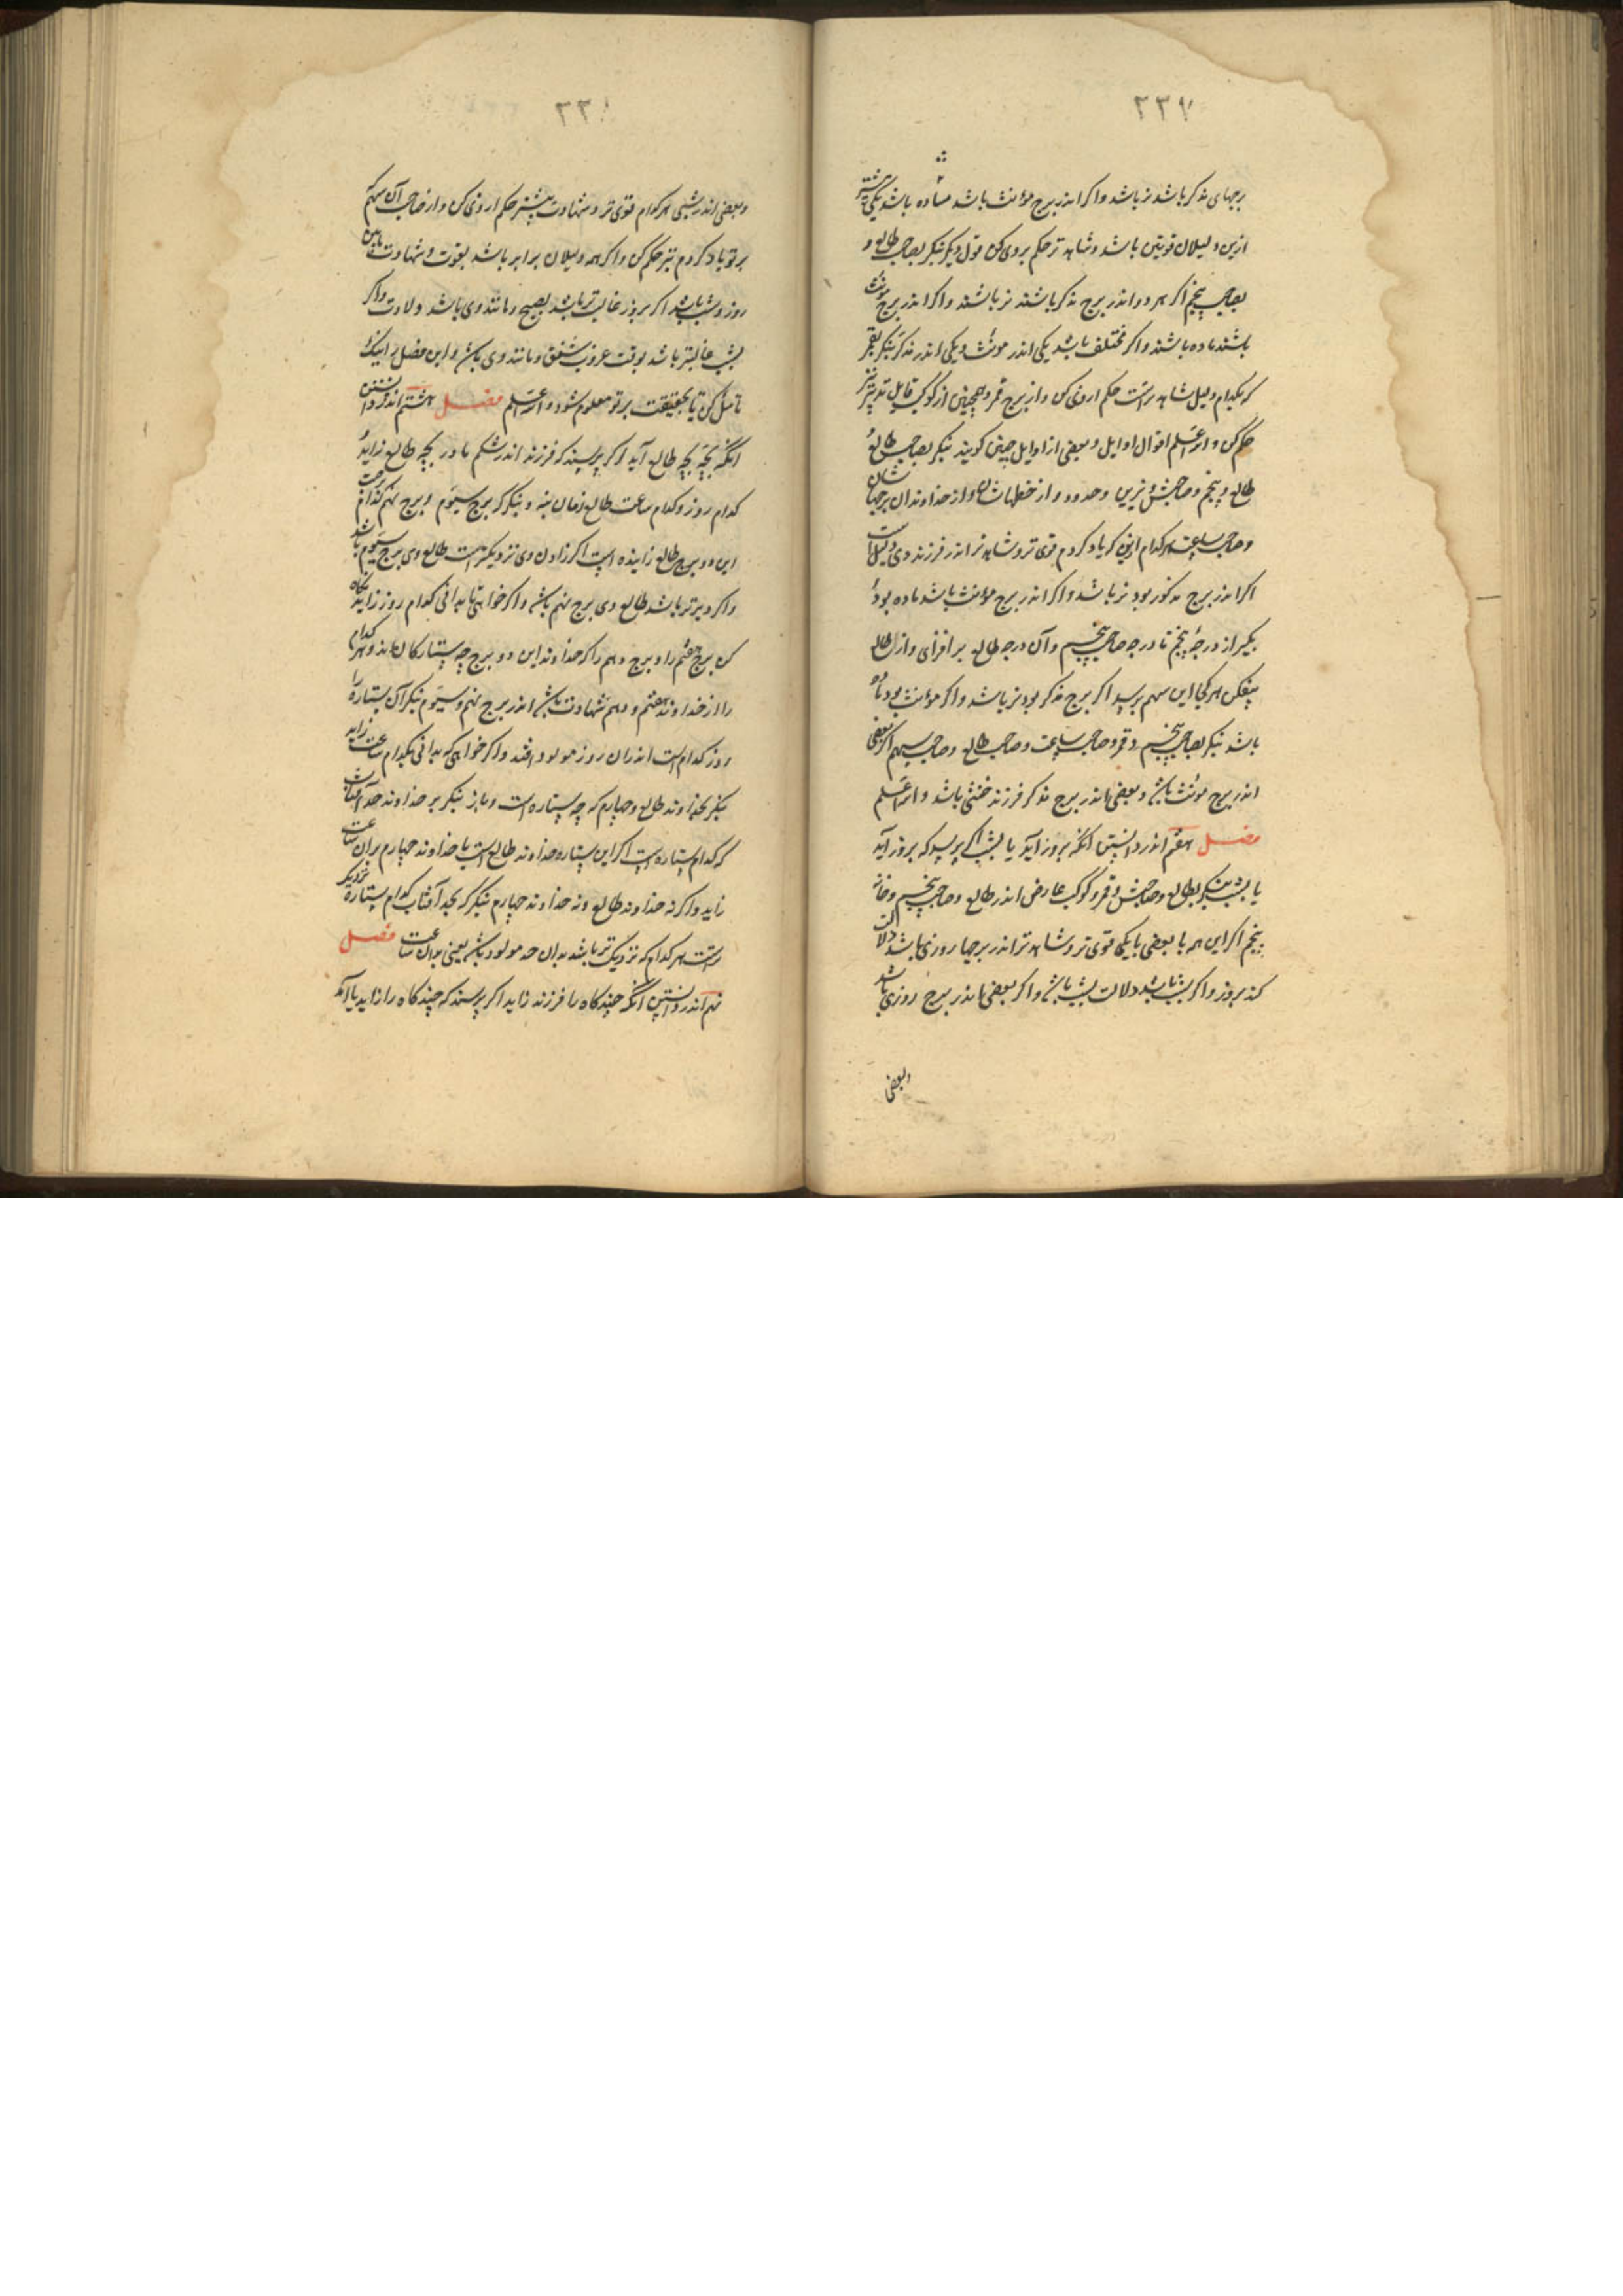 ٢٢٧
برجهای مذکر باشد نر باشد واکر اندر برج مؤنث باشد ماده باشد یکی بیشتر
ازین دلیلان قویتن باشد وشاهد تر حکم بروی کن قول دیکر بنکر بصاحب طالع و
بصاحب پنجم اکر هر دو اندر برج مذکر باشند نر باشند واکر اندر برج مؤنث
باشند ماده باشند واکر مختلف باشد یکی اندر مؤنث ویکی اندر مذکر بنکر بقمر
که بکدام دلیل شاهد تراست حکم ازوی کن واز برج قمر وهمچنین از کوکب قابل تدبیر نیز
حکم کن والله اعلم اقوال اوایل وبعضی از اوایل چنین کویند بنکر بصاحب طالع و
طالع وپنجم وصاحبش ونیرین وحدود واز خداوندان برجهاشان
وصاحب ساعت هر کدام ازین که یاد کردم قوی تر وشاهد تر اندر فرزند وی دلیل است
اکر اندر برج مذکور بود نر باشد واکر اندر برج مؤنث باشد ماده بود
بکیر از درجه پنجم تا درجه صاحب پنجم وآن درجه طالع بر افزای واز طالع
بیفکن هر کجا این سهم برسد اکر برج مذکر بود نر باشد واکر مؤنث بود ماده
باشد بنکر بصاحب پنجم وقمر وصاحب ساعت وصاحب طالع وصاحب سهم اکر بعضی
اندر برج مؤنث باشد وبعضی اندر برج مذکر فرزند خنثی باشد والله اعلم
فصل هفتم اندر دانستن آنکه بروز آید یا بشب اکر پرسد که بروز آید
یا بشب بنکر بطالع وصاحبش وقمر وکوکب عارض اندر طالع وصاحب پنجم وخانه
پنجم اکر این همه یا بعضی یا یکی قوی تر وشاهد تر اندر برجها روزی باشد دلالت
کند بروز واکر بشب باشد دلالت بشب باشد واکر بعضی اندر برج روزی باشد
وبعضی
٢٢٨
وبعضی اندر شبی هر کدام قوی تر وشهادت بیشتر حکم ازوی کن واز صاحب آن سهم
بر تو یاد کردم نیز حکم کن واکر همه دلیلان برابر باشد بقوت وشهادت مابین
روز وشب باشد اکر بروز غالب تر باشد بصبح ومانند وی باشد ولادت واکر
بشب غالبتر باشد بوقت غروب شفق ومانند وی باشد واین فصل را نیک
تامل کن تا بحقیقت بر تو معلوم شود والله اعلم فصل هشتم اندر دانستن
آنکه بچه بچه طالع آید اکر پرسند که فرزند اندر شکم مادر بچه طالع زاید و
کدام روز وکدام ساعت طالع زمان بنه وبنکر که برج سیوم وبرج نهم کدام برجست
این دو برج طالع زاینده است اکر زادن وی نزدیکتر است طالع وی برج سیوم باشد
واکر دیرتر باشد طالع وی برج نهم باشد واکر خواهی تا بدانی کدام روز زاید نکاه
کن برج هفتم را وبرج دهم را که خداوند این دو برج چه ستارکان اند وهر کدام
را از خداوند هفتم ودهم شهادت باشد اندر برج نهم وسیوم بنکر آن ستاره را
روز کدام است اندران روز مولود افتد واکر خواهی که بدانی بکدام ساعت زاید
بنکر بخداوند طالع وچهارم که چه ستاره است وباز بنکر بر خداوند حد آفتاب
که کدام ستاره است اکر این ستاره خداوند طالع است یا خداوند چهارم بران ساعت
زاید واکر نه خداوند طالع ونه خداوند چهارم بنکر که بحد آفتاب کدام ستاره نزدیک
تراست هر کدام که نزدیک تر باشد بدان حد مولود باشد یعنی بدان ساعت فصل
نهم اندر دانستن آنکه چند کاه را فرزند زاید اکر پرسند که چند کاه را زاید یا آنکه